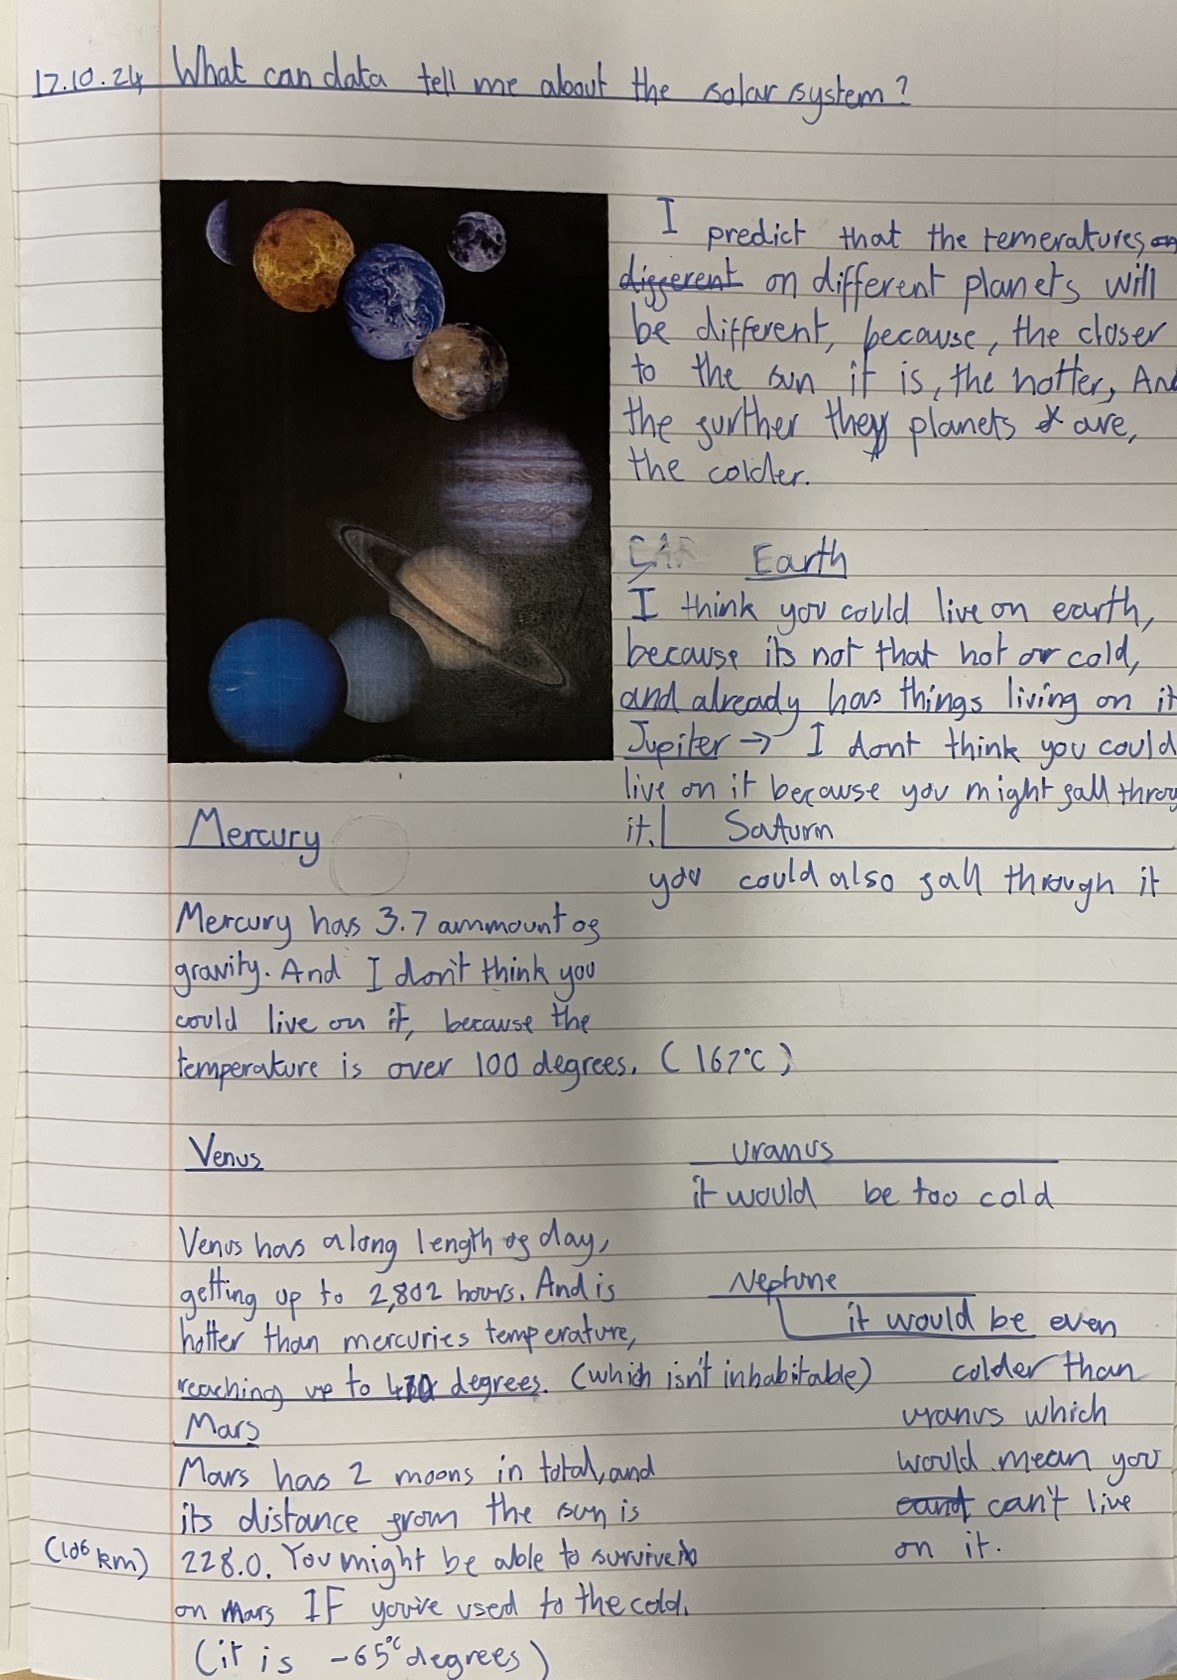 17.10.24 What can data tell me about the solar system?
I predict that the temeratures on
different on different planets will
be different, because, the closer
to the sun it is, the hotter, And
the further they planets are,
the colder.
EAR Earth
I think you could live on earth,
because its not that hot or cold,
and already has things living on it
Jupiter → I dont think you could
live on it because you might fall throu
it. Saturn
you could also fall through it
Mercury
Mercury has 3.7 ammount of
gravity. And I don't think you
could live on it, because the
temperature is over 100 degrees. (167°C)
Venus
Venus has a long length of day,
getting up to 2,802 hours. And is
hotter than mercuries temperature,
reaching up to degrees. (which isn't inhabitable)
Mars
Mars has 2 moons in total, and
its distance from the sun is
(10⁶ km) 228.0. You might be able to survive
on Mars IF you've used to the cold.
(it is -65°C degrees)
Uranus
it would be too cold
Neptune
it would be even
colder than
uranus which
would mean you
cant can't live
on it.